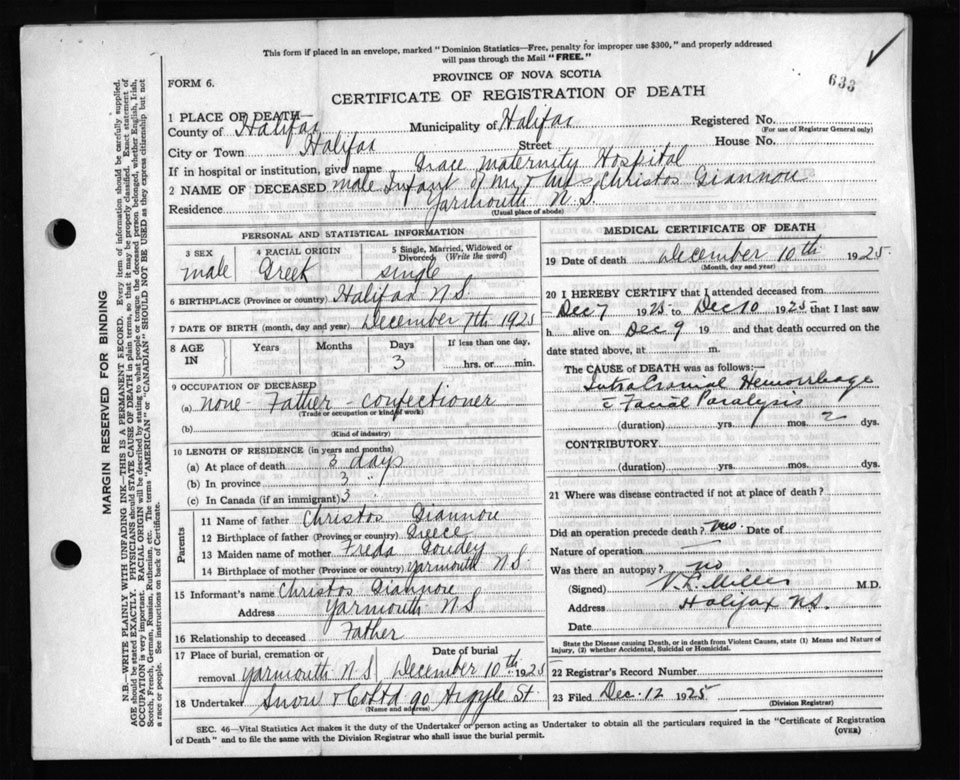 This form if placed in an envelope, marked "Dominion Statistics—Free, penalty for improper use $300," and properly addressed
will pass through the Mail "FREE."
PROVINCE OF NOVA SCOTIA
633
FORM 6.
CERTIFICATE OF REGISTRATION OF DEATH
1 PLACE OF DEATH
County of Halifax Municipality of Halifax Registered No.
(For use of Registrar General only)
City or Town Halifax Street House No.
If in hospital or institution, give name Grace Maternity Hospital
2 NAME OF DECEASED male Infant of Mr & Mrs Christos Giannou
Residence Yarmouth N.S.
(Usual place of abode)
PERSONAL AND STATISTICAL INFORMATION
3 SEX 4 RACIAL ORIGIN 5 Single, Married, Widowed or
Divorced (Write the word)
male Greek single
6 BIRTHPLACE (Province or country) Halifax N.S.
7 DATE OF BIRTH (month, day and year) December 7th 1925
8 AGE IN Years Months Days If less than one day,
3 hrs. or min.
9 OCCUPATION OF DECEASED
(a) none - Father - confectioner
(Trade or occupation or kind of work)
(b)
(Kind of industry)
10 LENGTH OF RESIDENCE (in years and months)
(a) At place of death 3 days
(b) In province 3 "
(c) In Canada (if an immigrant) 3
Parents
11 Name of father Christos Giannou
12 Birthplace of father (Province or country) Greece
13 Maiden name of mother Freda Goudey
14 Birthplace of mother (Province or country) Yarmouth N.S.
15 Informant's name Christos Giannou
Address Yarmouth N.S
16 Relationship to deceased Father
17 Place of burial, cremation or Date of burial
removal Yarmouth N.S December 10th 1925
18 Undertaker Snow & Co Ltd 90 Argyle St.
(Name and address)
MEDICAL CERTIFICATE OF DEATH
19 Date of death December 10th 1925
(Month, day and year)
20 I HEREBY CERTIFY that I attended deceased from
Dec 7 1925 to Dec 10 1925 that I last saw
h alive on Dec 9 19 and that death occurred on the
date stated above, at m.
The CAUSE OF DEATH was as follows:—
Intra Cranial Hemorrhage
c̄ Facial Paralysis
(duration) yrs. mos. 2 dys.
CONTRIBUTORY
(duration) yrs. mos. dys.
21 Where was disease contracted if not at place of death?
Did an operation precede death? Date of
Nature of operation —
Was there an autopsy? no
(Signed) M.D.
Address Halifax N.S.
Date
State the Disease causing Death, or in death from Violent Causes, state (1) Means and Nature of
Injury, (2) whether Accidental, Suicidal or Homicidal.
22 Registrar's Record Number
23 Filed Dec. 12 1925
(Division Registrar)
SEC. 46—Vital Statistics Act makes it the duty of the Undertaker or person acting as Undertaker to obtain all the particulars required in the "Certificate of Registration
of Death" and to file the same with the Division Registrar who shall issue the burial permit.
(OVER)
MARGIN RESERVED FOR BINDING
N.B.—WRITE PLAINLY WITH UNFADING INK—THIS IS A PERMANENT RECORD. Every item of information should be carefully supplied.
AGE should be stated EXACTLY. PHYSICIANS should STATE CAUSE OF DEATH in plain terms, so that it may be properly classified. Exact statement of
OCCUPATION is very important. RACIAL ORIGIN will be described by stating to what people or tongue the deceased person belonged, whether English, Irish,
Scotch, French, German, Russian, Ruthenian, etc. The terms "AMERICAN" or "CANADIAN" SHOULD NOT BE USED as they express citizenship but not
a race or people. See instructions on back of Certificate.